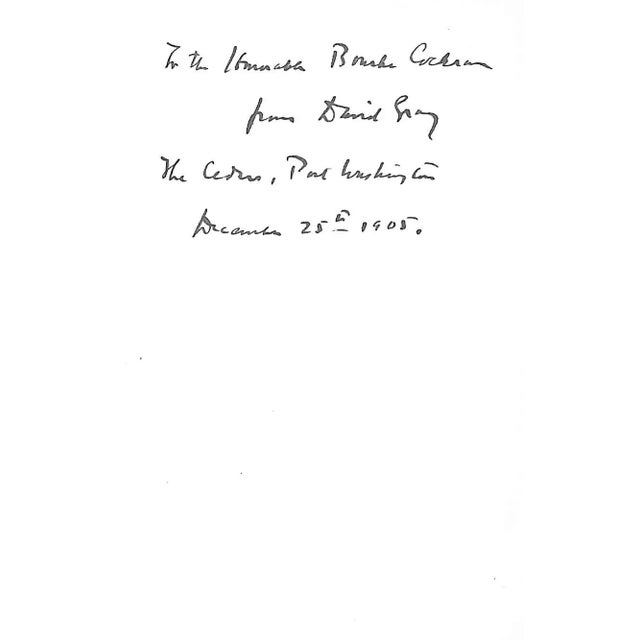 To the Honorable Bourke Cockran
from David Gray
The Cedars, Port Washington
December 25th 1905.